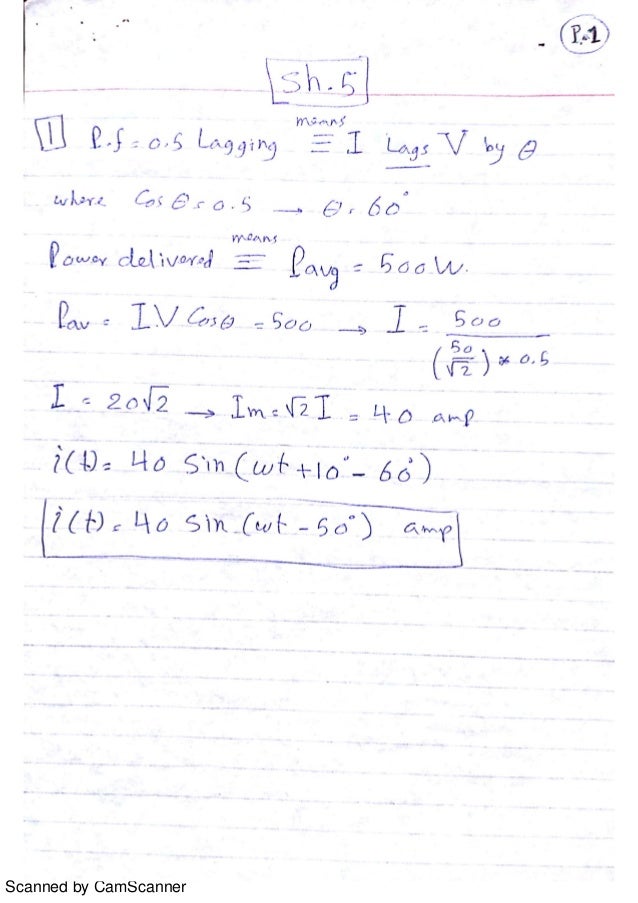 P.1
Sh.5
1 P.f = 0.5 Lagging means ≡ I Lags V by θ
where Cos θ = 0.5 → θ = 60°
Power delivered means ≡ Pavg = 500 W.
Pav = I.V Cosθ = 500 → I = 500 / (50/√2) * 0.5
I = 20√2 → Im = √2 I = 40 amp
i(t) = 40 Sin (wt + 10° - 60°)
i(t) = 40 Sin (wt - 50°) amp
Scanned by CamScanner